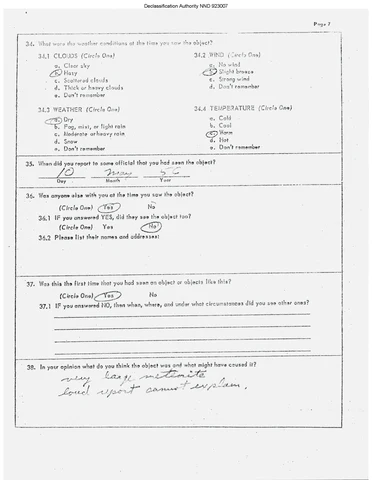 Declassification Authority NND 923007
Page 7
34. What were the weather conditions at the time you saw the object?
34.1 CLOUDS (Circle One)
a. Clear sky
b. Hazy
c. Scattered clouds
d. Thick or heavy clouds
e. Don't remember
34.2 WIND (Circle One)
a. No wind
b. Slight breeze
c. Strong wind
d. Don't remember
34.3 WEATHER (Circle One)
a. Dry
b. Fog, mist, or light rain
c. Moderate or heavy rain
d. Snow
e. Don't remember
34.4 TEMPERATURE (Circle One)
a. Cold
b. Cool
c. Warm
d. Hot
e. Don't remember
35. When did you report to some official that you had seen the object?
10 May
Day Month Year
36. Was anyone else with you at the time you saw the object?
(Circle One) Yes No
36.1 IF you answered YES, did they see the object too?
(Circle One) Yes No
36.2 Please list their names and addresses:
37. Was this the first time that you had seen an object or objects like this?
(Circle One) Yes No
37.1 IF you answered NO, then when, where, and under what circumstances did you see other ones?
38. In your opinion what do you think the object was and what might have caused it?
very large meteorite
loud report cannot explain.